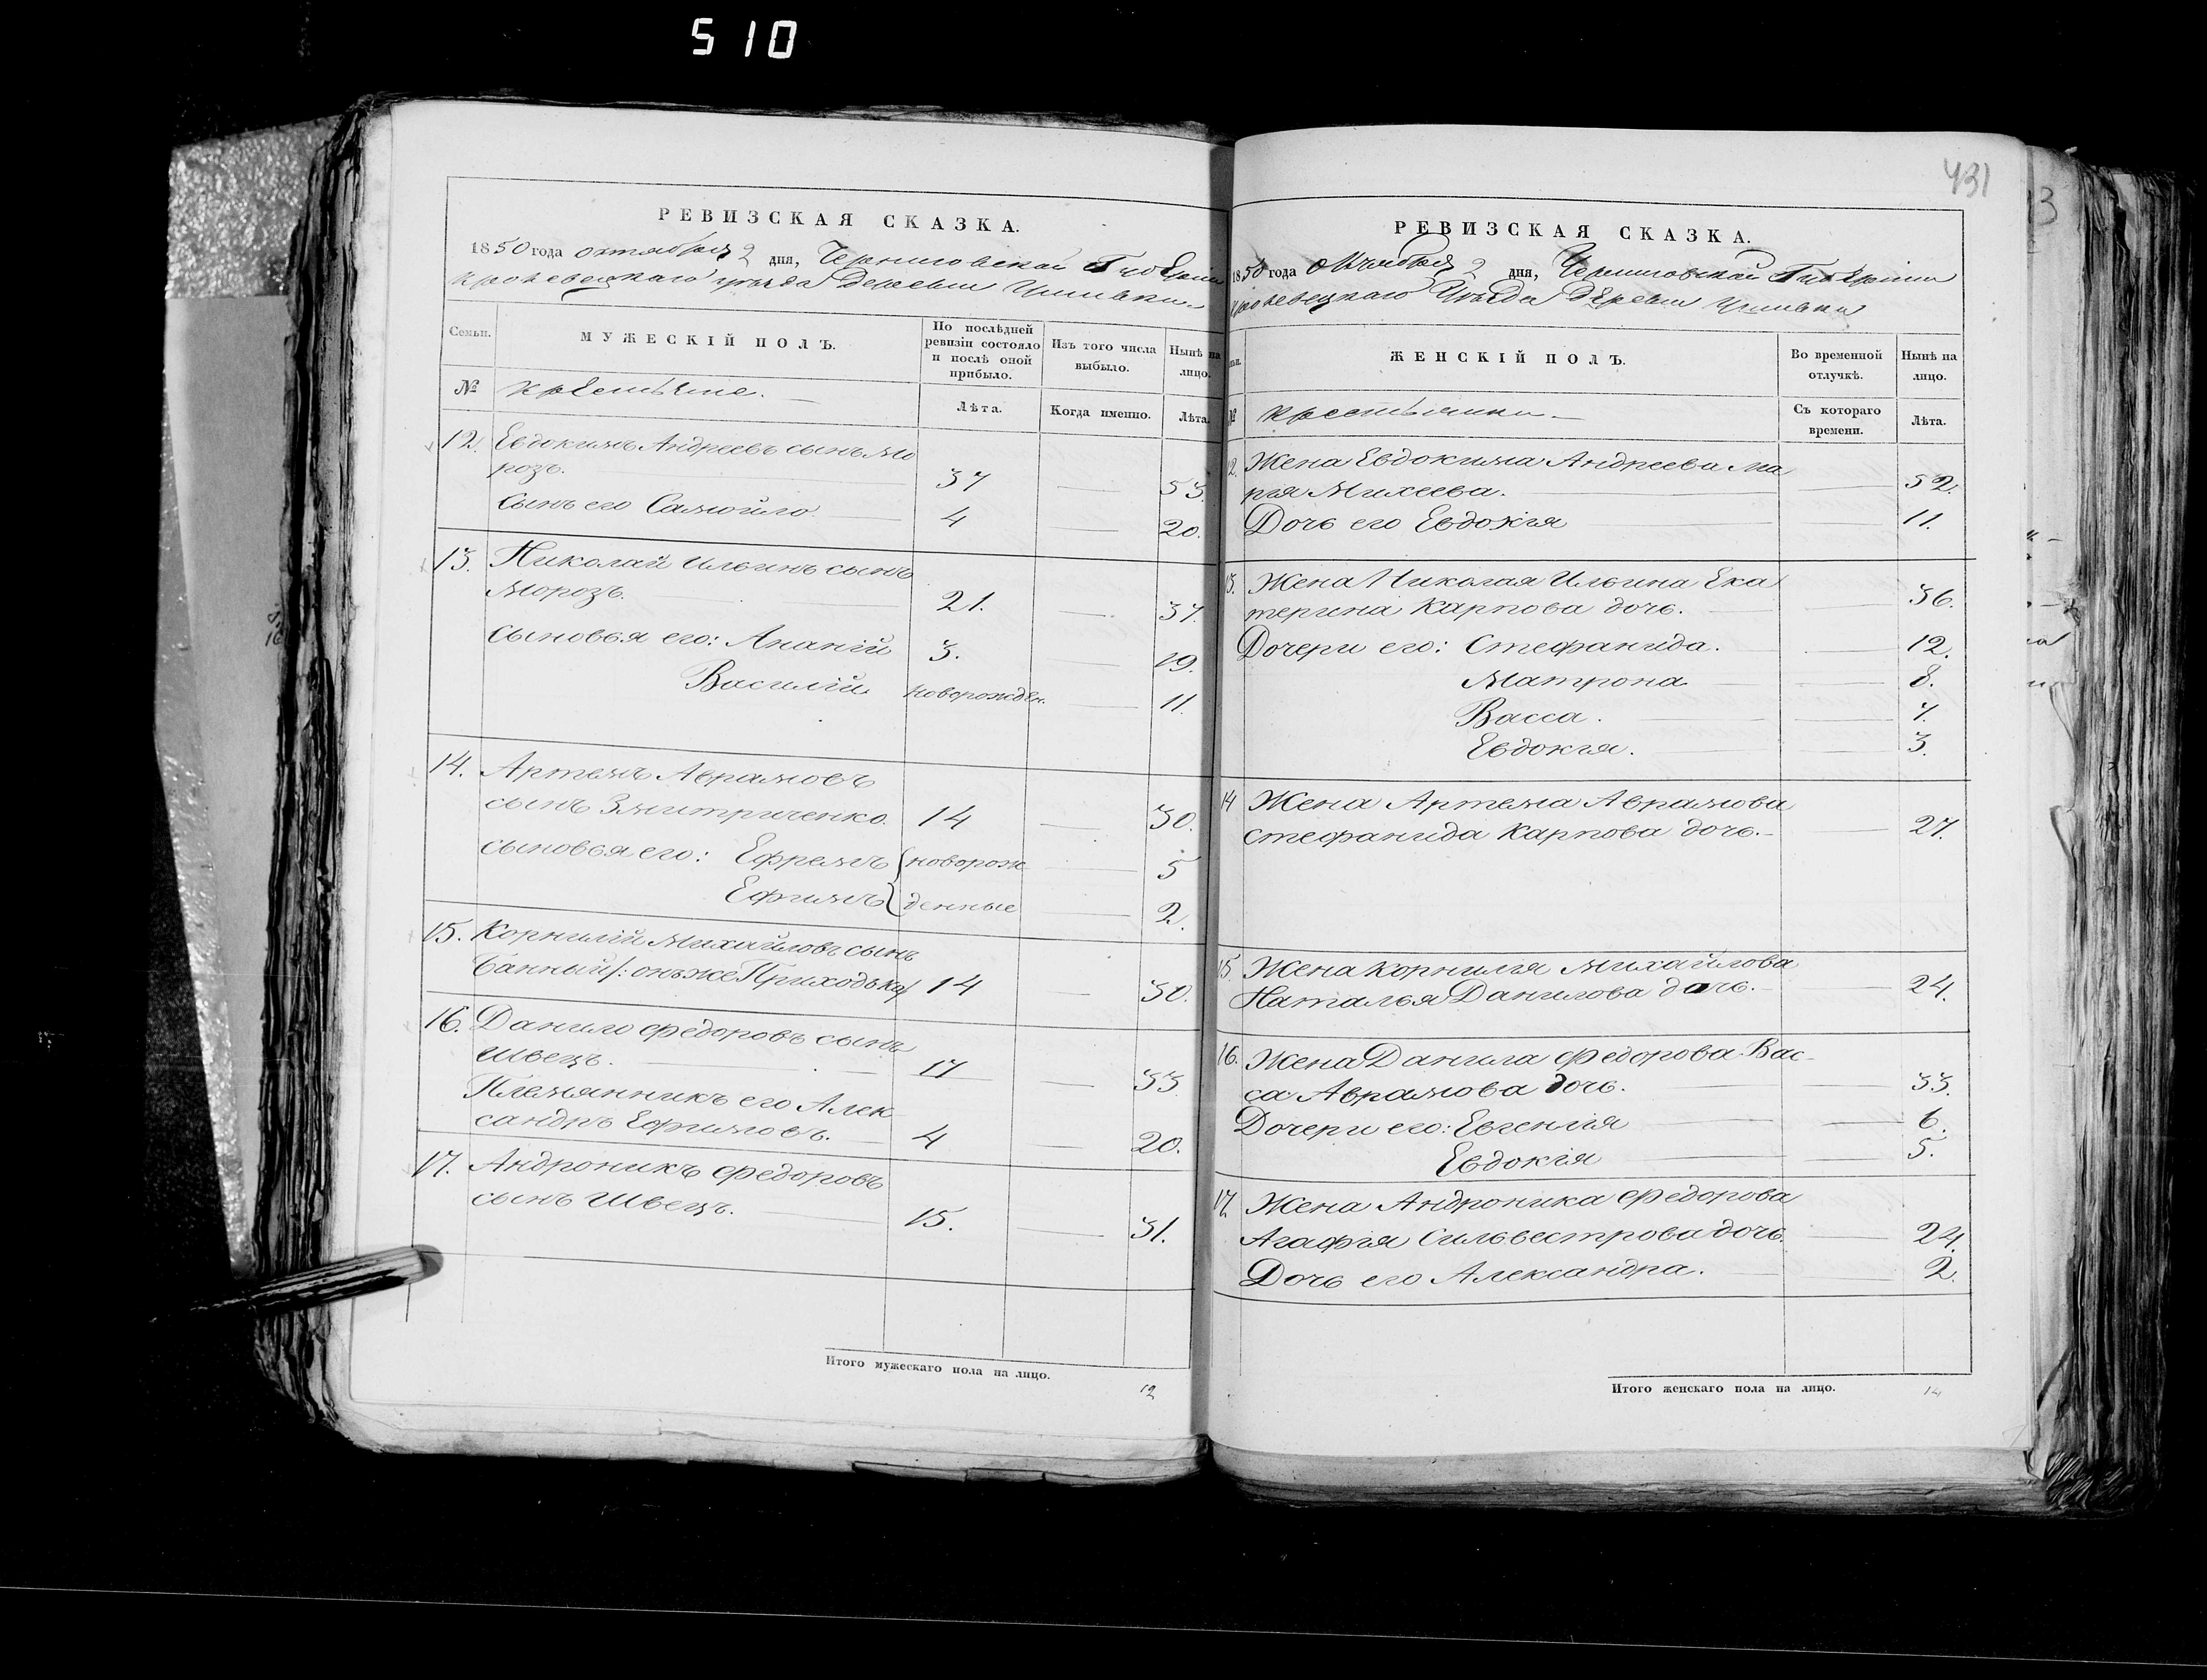 510
РЕВИЗСКАЯ СКАЗКА.
1850 года октября 2 дня, Черниговской Губерніи
Кролевецкаго уѣзда Деревни
Семьи.
МУЖЕСКІЙ ПОЛЪ.
По послѣдней ревизіи состояло и послѣ оной прибыло.
Изъ того числа выбыло.
Нынѣ на лицо.
№
крестьяне.
Лѣта.
Когда именно.
Лѣта.
12. Евдокимъ Андреевъ сынъ Мо
розъ. 37 53.
Сынъ его Самойло 4 20.
13. Николай Ильинъ сынъ
Морозъ. 21. 37.
сыновья его: Ананій 3. 19.
Василій новорожден. 11.
14. Артемъ Аврамовъ
сынъ Змитриченко. 14 30.
сыновья его: Ефремъ новорож 5
Ефимъ денные 2.
15. Корнилій Михайловъ сынъ
Банный /: онъ же Приходько/ 14 30.
16. Данило Федоровъ сынъ
Швецъ. 17 33
Племянникъ его Алек
сандръ Ефимовъ. 4 20.
17. Андроникъ Федоровъ
сынъ Швецъ. 15. 31.
Итого мужескаго пола на лицо.
12
431
РЕВИЗСКАЯ СКАЗКА.
1850 года Октября 2 дня, Черниговской Губерніи
Кролевецкаго Уѣзда Деревни
ЖЕНСКІЙ ПОЛЪ.
Во временной отлучкѣ.
Нынѣ на лицо.
№
крестьянки
Съ котораго времени.
Лѣта.
12. Жена Евдокима Андреева Ма
рія Михеева. 52.
Дочь его Евдокія 11.
13. Жена Николая Ильина Ека
терина Карпова дочь. 36.
Дочери его: Стефанида. 12.
Матрона 8.
Васса. 7.
Евдокія. 3.
14 Жена Артема Аврамова
Стефанида Карпова дочь. 27.
15 Жена Корнилія Михайлова
Наталья Данилова дочь. 24.
16. Жена Данила Федорова Вас-
са Аврамова дочь. 33.
Дочери его: Евгенія 6.
Евдокія 5.
17. Жена Андроника Федорова
Агафія Сильвестрова дочь. 24.
Дочь его Александра. 2.
Итого женскаго пола на лицо.
14